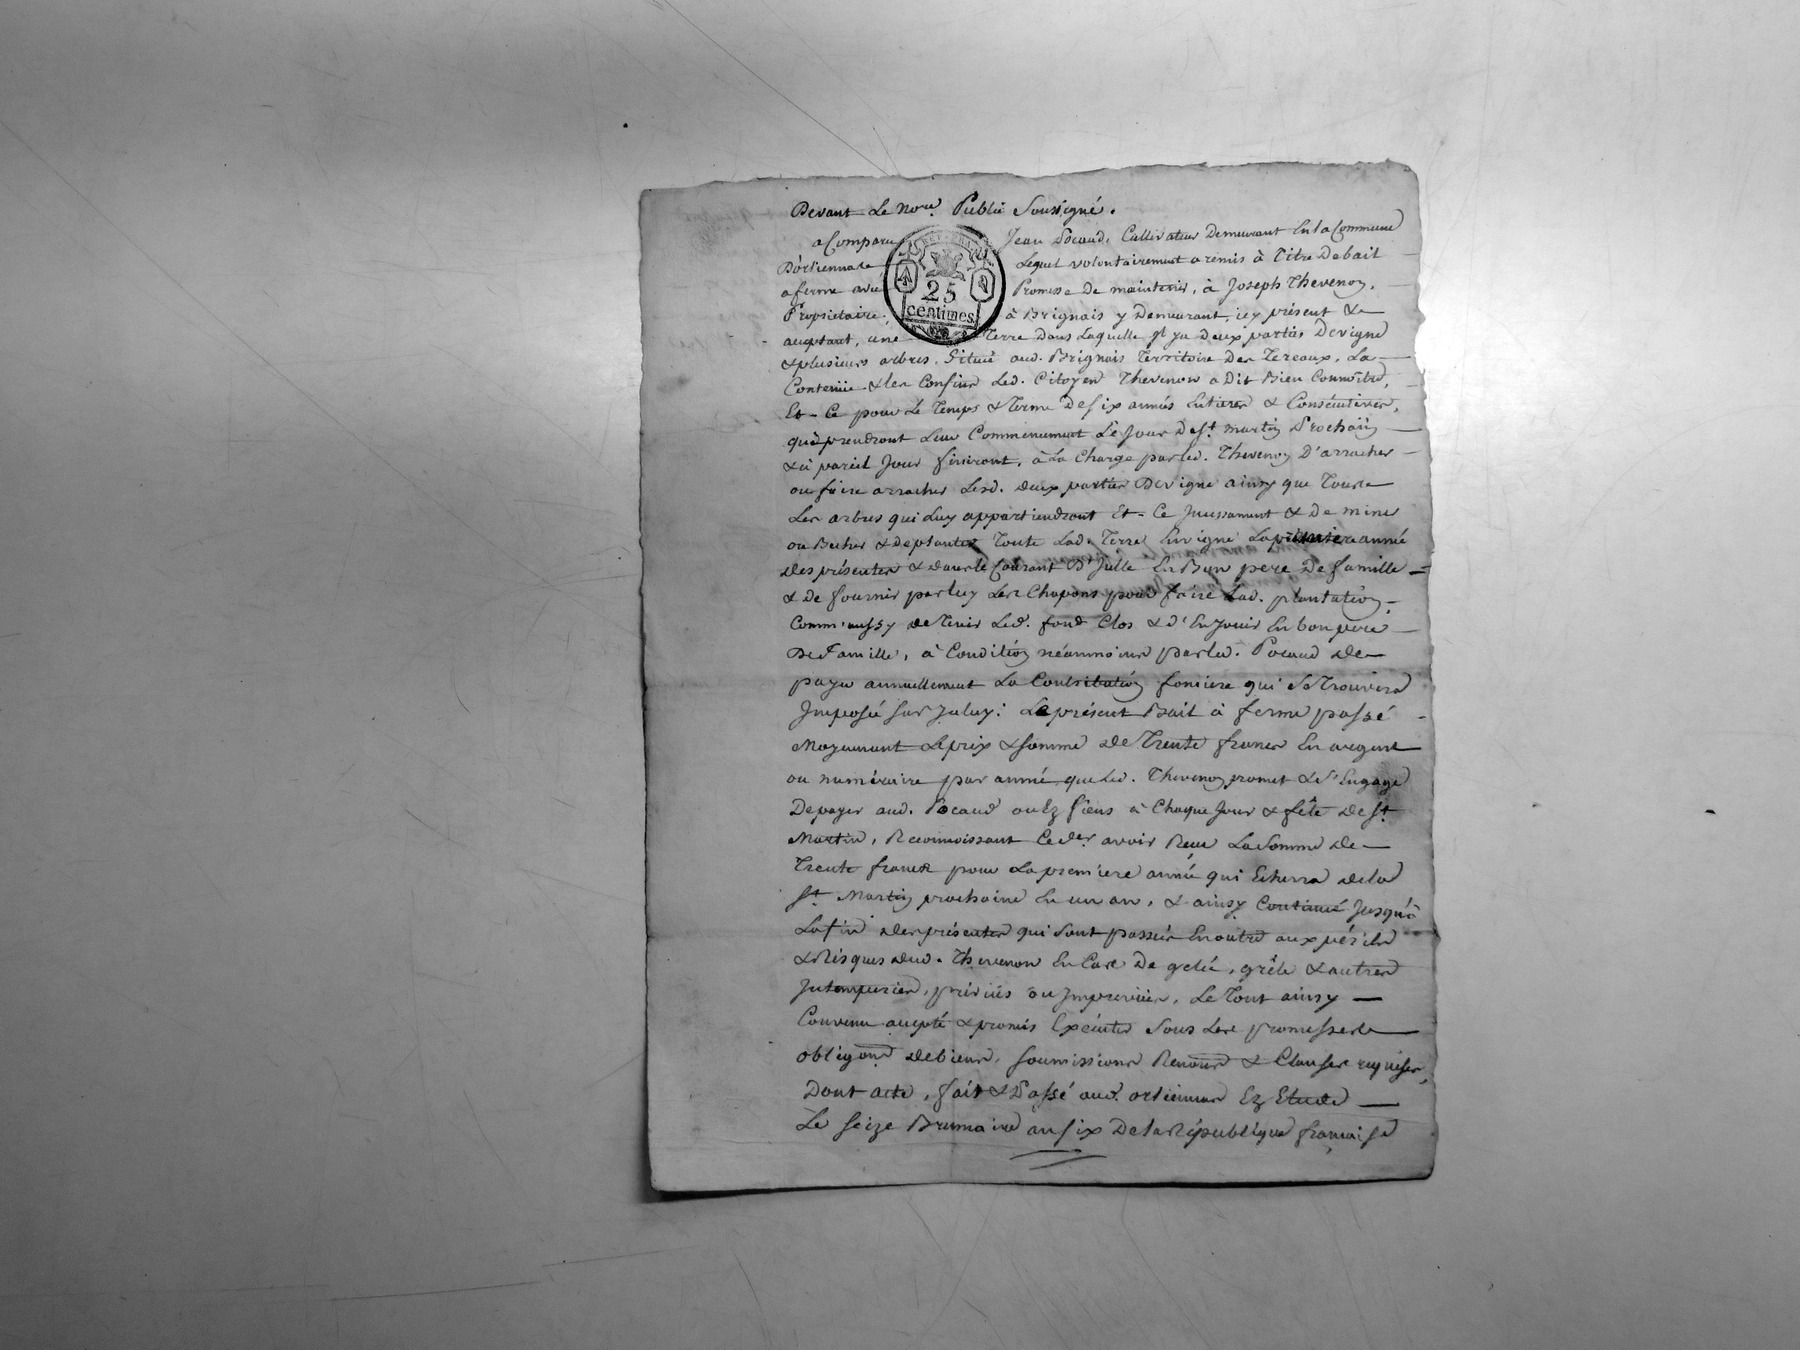 Devant Le No.re Public Soussigné.
a Comparu Jean Pocaud, Cultivateur Demeurant En la Commune
D'orliennas Lequel volontairement a remis à Titre De bail
a ferme avec Promesse De maintenir, à Joseph Thevenon,
Propriétaire, à Brignais y Demeurant, icy présent &
aceptant, une Terre Dans Laquelle Il y a Deux parties De vigne
& plusieurs arbres, Situé aud. Brignais Territoire Des Tereaux, La
Contenüe & les Confins Led. Citoyen Thevenon a Dit Bien Connoitre,
Et Ce pour Le Temps & Terme De six années Entieres & Consécutives,
qui prendront Leur Commencement Le Jour De St. Martin Prochain
& à pareil Jour finiront, à La Charge par Led. Thevenon D'arracher
ou faire arracher Lesd. deux parties De vigne ainsy que Tous
Les arbres qui Luy appartiendront Et Ce Incessament & De miner
ou Becher & De planter Toute Lad. Terre En vigne La premiere année
Des présentes & dans le Courant D'Icelle En Bon pere De famille
& de fournir par luy Les Chapons pour faire Lad. plantation,
Comm'aussy de Tenir Led. fond Clos & d'En Jouir En bon pere
De Famille, à Condition néanmoins par Led. Pocaud de
payer annuellement La Contribution fonciere qui se Trouvera
Imposée sur Iceluy: Le présent Bail à ferme passé
Moyennant Le prix & somme de Trente francs En argent
ou numéraire par année que Led. Thevenon promet & s'Engage
De payer aud. Pocaud ou Ez siens à Chaque Jour & fête de St.
Martin, Reconnoissant Ce der. avoir Reçu La Somme de
Trente francs pour La premiere année qui Echerra de la
St. Martin prochaine En un an, & ainsy Continué Jusqu'à
La fin des présentes qui Sont passées En outre aux périls
& Risques dud. Thevenon En Cas De gelée, grêle & autres
Intemperies, prévües ou Imprévües, Le Tout ainsy
Convenu accepté & promis Exécuter Sous Les promesses
obligons. de biens, soumissions Renons. & Clauses requises,
Dont acte, fait & Passé aud. orliennas Ez Etude
Le seize Brumaire an six De la République française
RÉP. FRA.
25
centimes